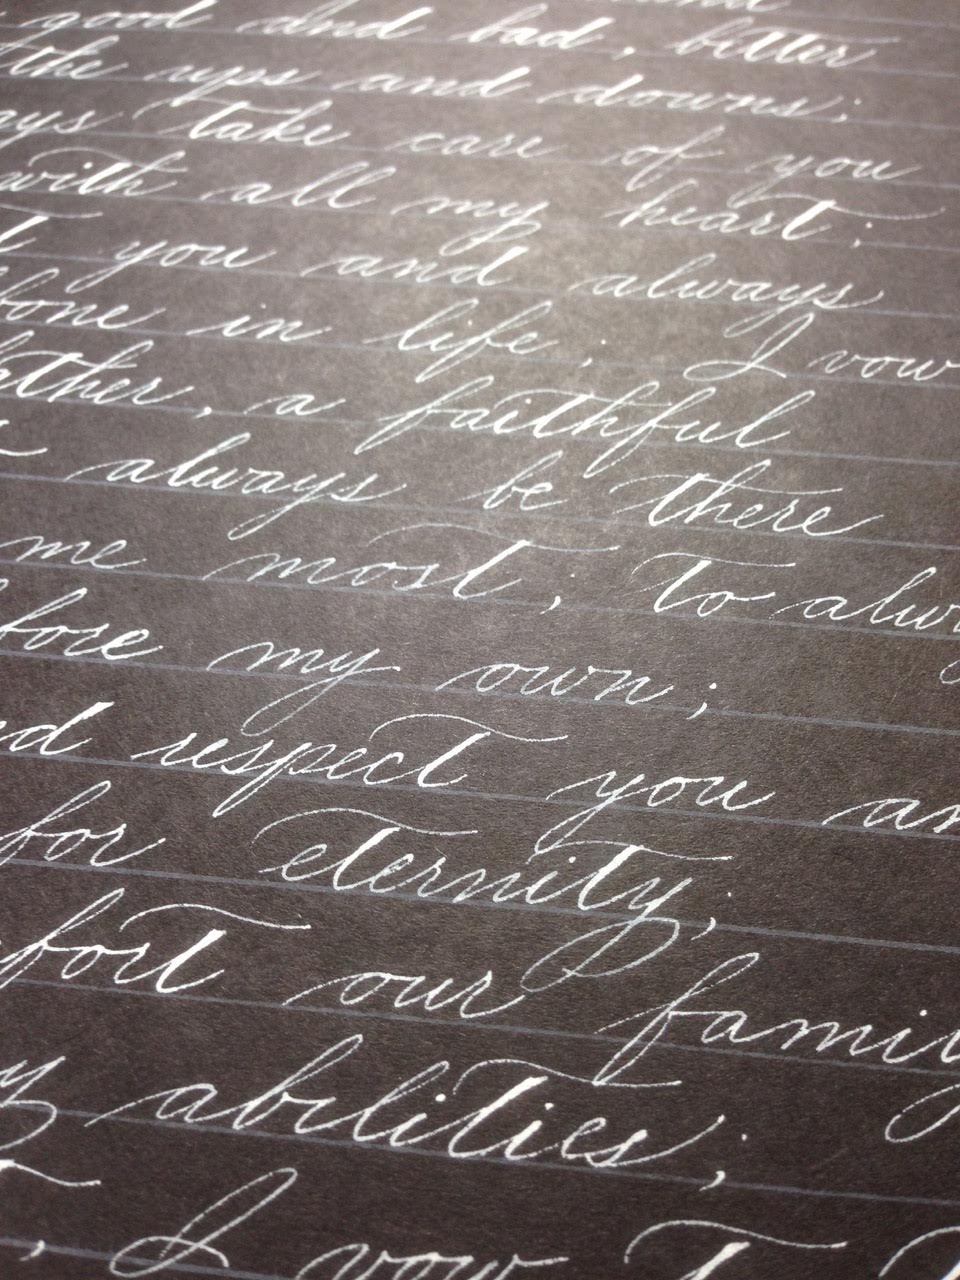 good and bad, bitter
the ups and downs;
take care of you
with all my heart;
you and always
bone in life; I vow
father, a faithful
always be there
me most, to alw
fore my own;
respect you an
for eternity;
fort our family
abilities;
, I vow T